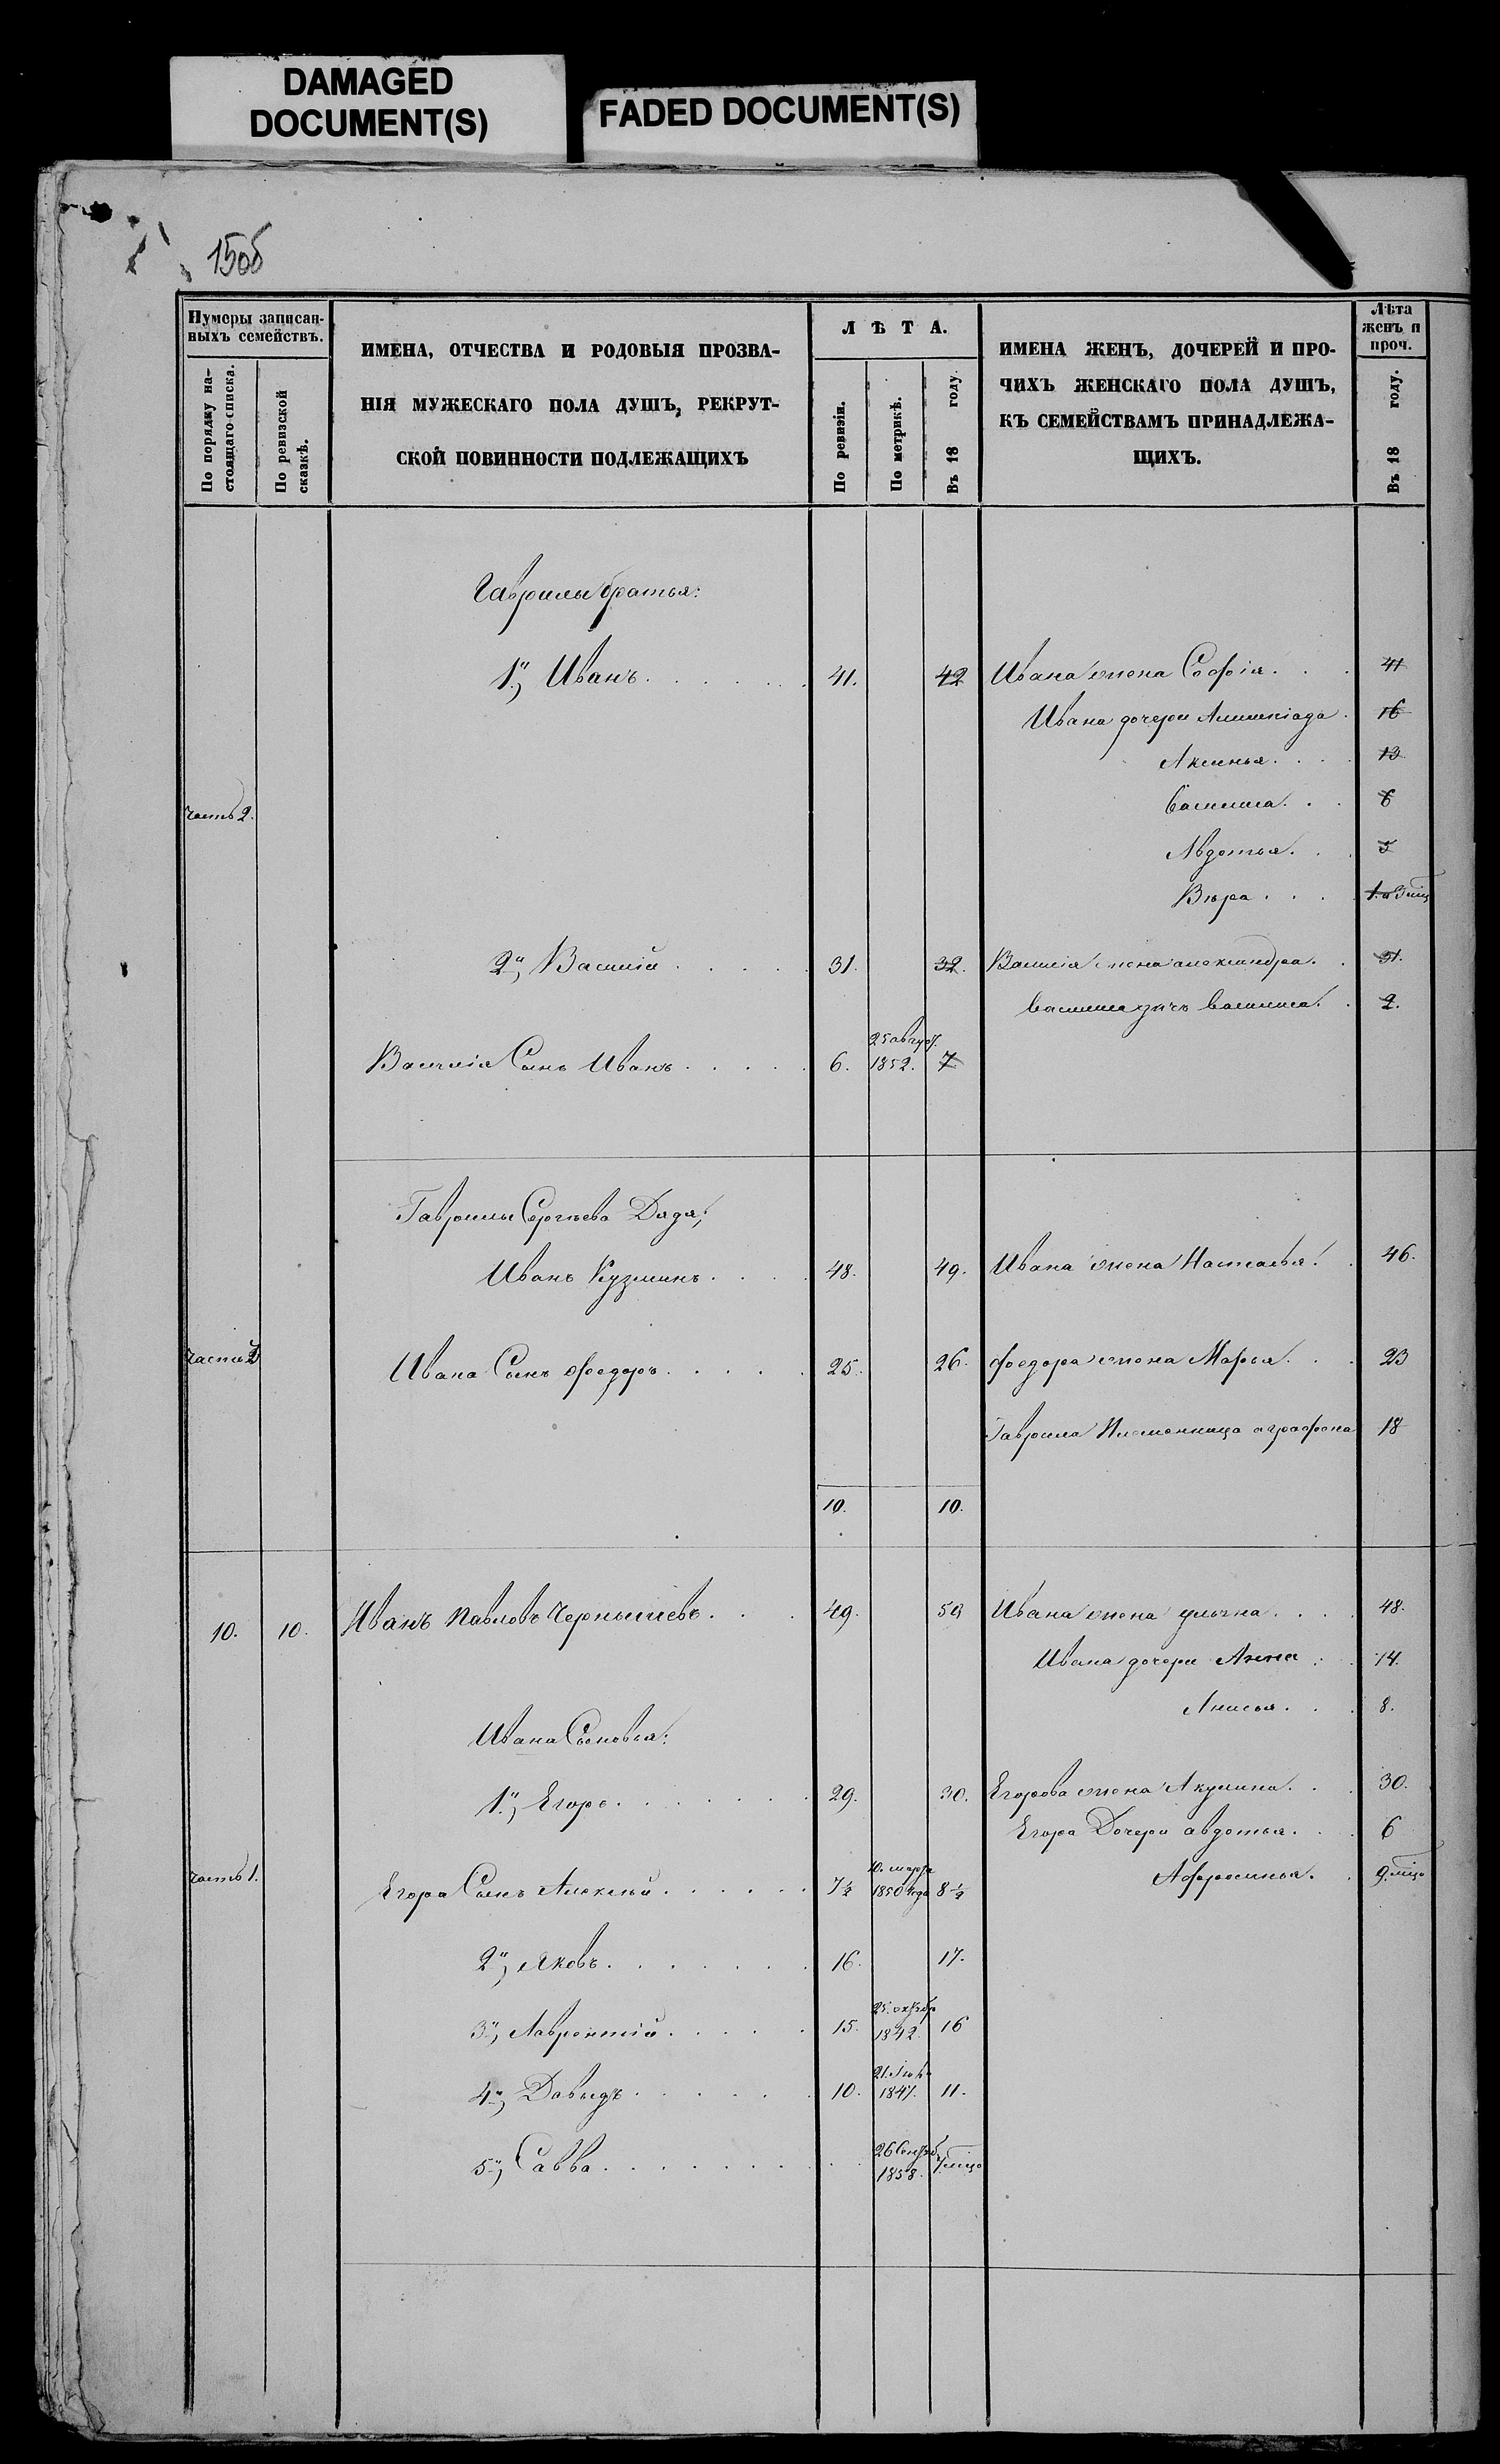 DAMAGED
DOCUMENT(S)
FADED DOCUMENT(S)
150б
Нумеры записан-
ныхъ семействъ.
По порядку на-
стоящаго списка.
По ревизской
сказкѣ.
ИМЕНА, ОТЧЕСТВА И РОДОВЫЯ ПРОЗВА-
НІЯ МУЖЕСКАГО ПОЛА ДУШЪ, РЕКРУТ-
СКОЙ ПОВИННОСТИ ПОДЛЕЖАЩИХЪ
ЛѢТА.
По ревизіи.
По метрикѣ.
Въ 18 году.
ИМЕНА ЖЕНЪ, ДОЧЕРЕЙ И ПРО-
ЧИХЪ ЖЕНСКАГО ПОЛА ДУШЪ,
КЪ СЕМЕЙСТВАМЪ ПРИНАДЛЕЖА-
ЩИХЪ.
Лѣта
женъ и
проч.
Въ 18 году.
Гаврилы братья:
1й, Иванъ 41. 42 Ивана жена Софія 41
Ивана дочери 16
Аксинья 13
часть 2. Василиса 6
Авдотья 5
Вѣра 1. и 3 мѣц
2й, Василій 31. 32. Василія жена александра 31.
василиса 2.
25 август.
Василія Сынъ Иванъ 6. 1852. 7
Гаврилы Сергѣева Дядя;
Иванъ Кузминъ 48. 49. Ивана жена Настасья 46.
часть 2 Ивана Сынъ Федоръ 25. 26. Федора жена Марья 23
Гаврила Племенница аграфена 18
10. 10.
10. 10. Иванъ Павловъ Чернышевъ 49. 50 Ивана жена 48.
Ивана дочери Анна 14.
Анисья 8.
Ивана Сыновья:
1й, Егоръ 29. 30. Егорова жена Акулина 30.
Егора Дочери авдотья 6
часть 1. Афросинья 9. мѣцо
10. марта
Егора Сынъ Алексѣй 7½ 1850 года 8½
2й, Яковъ 16. 17.
25. октябр
3й, Лаврентій 15. 1842. 16
4й, Давыдъ 10. 1847. 11.
26 Сентяб
5й, Савва 1858. 7 мѣцо